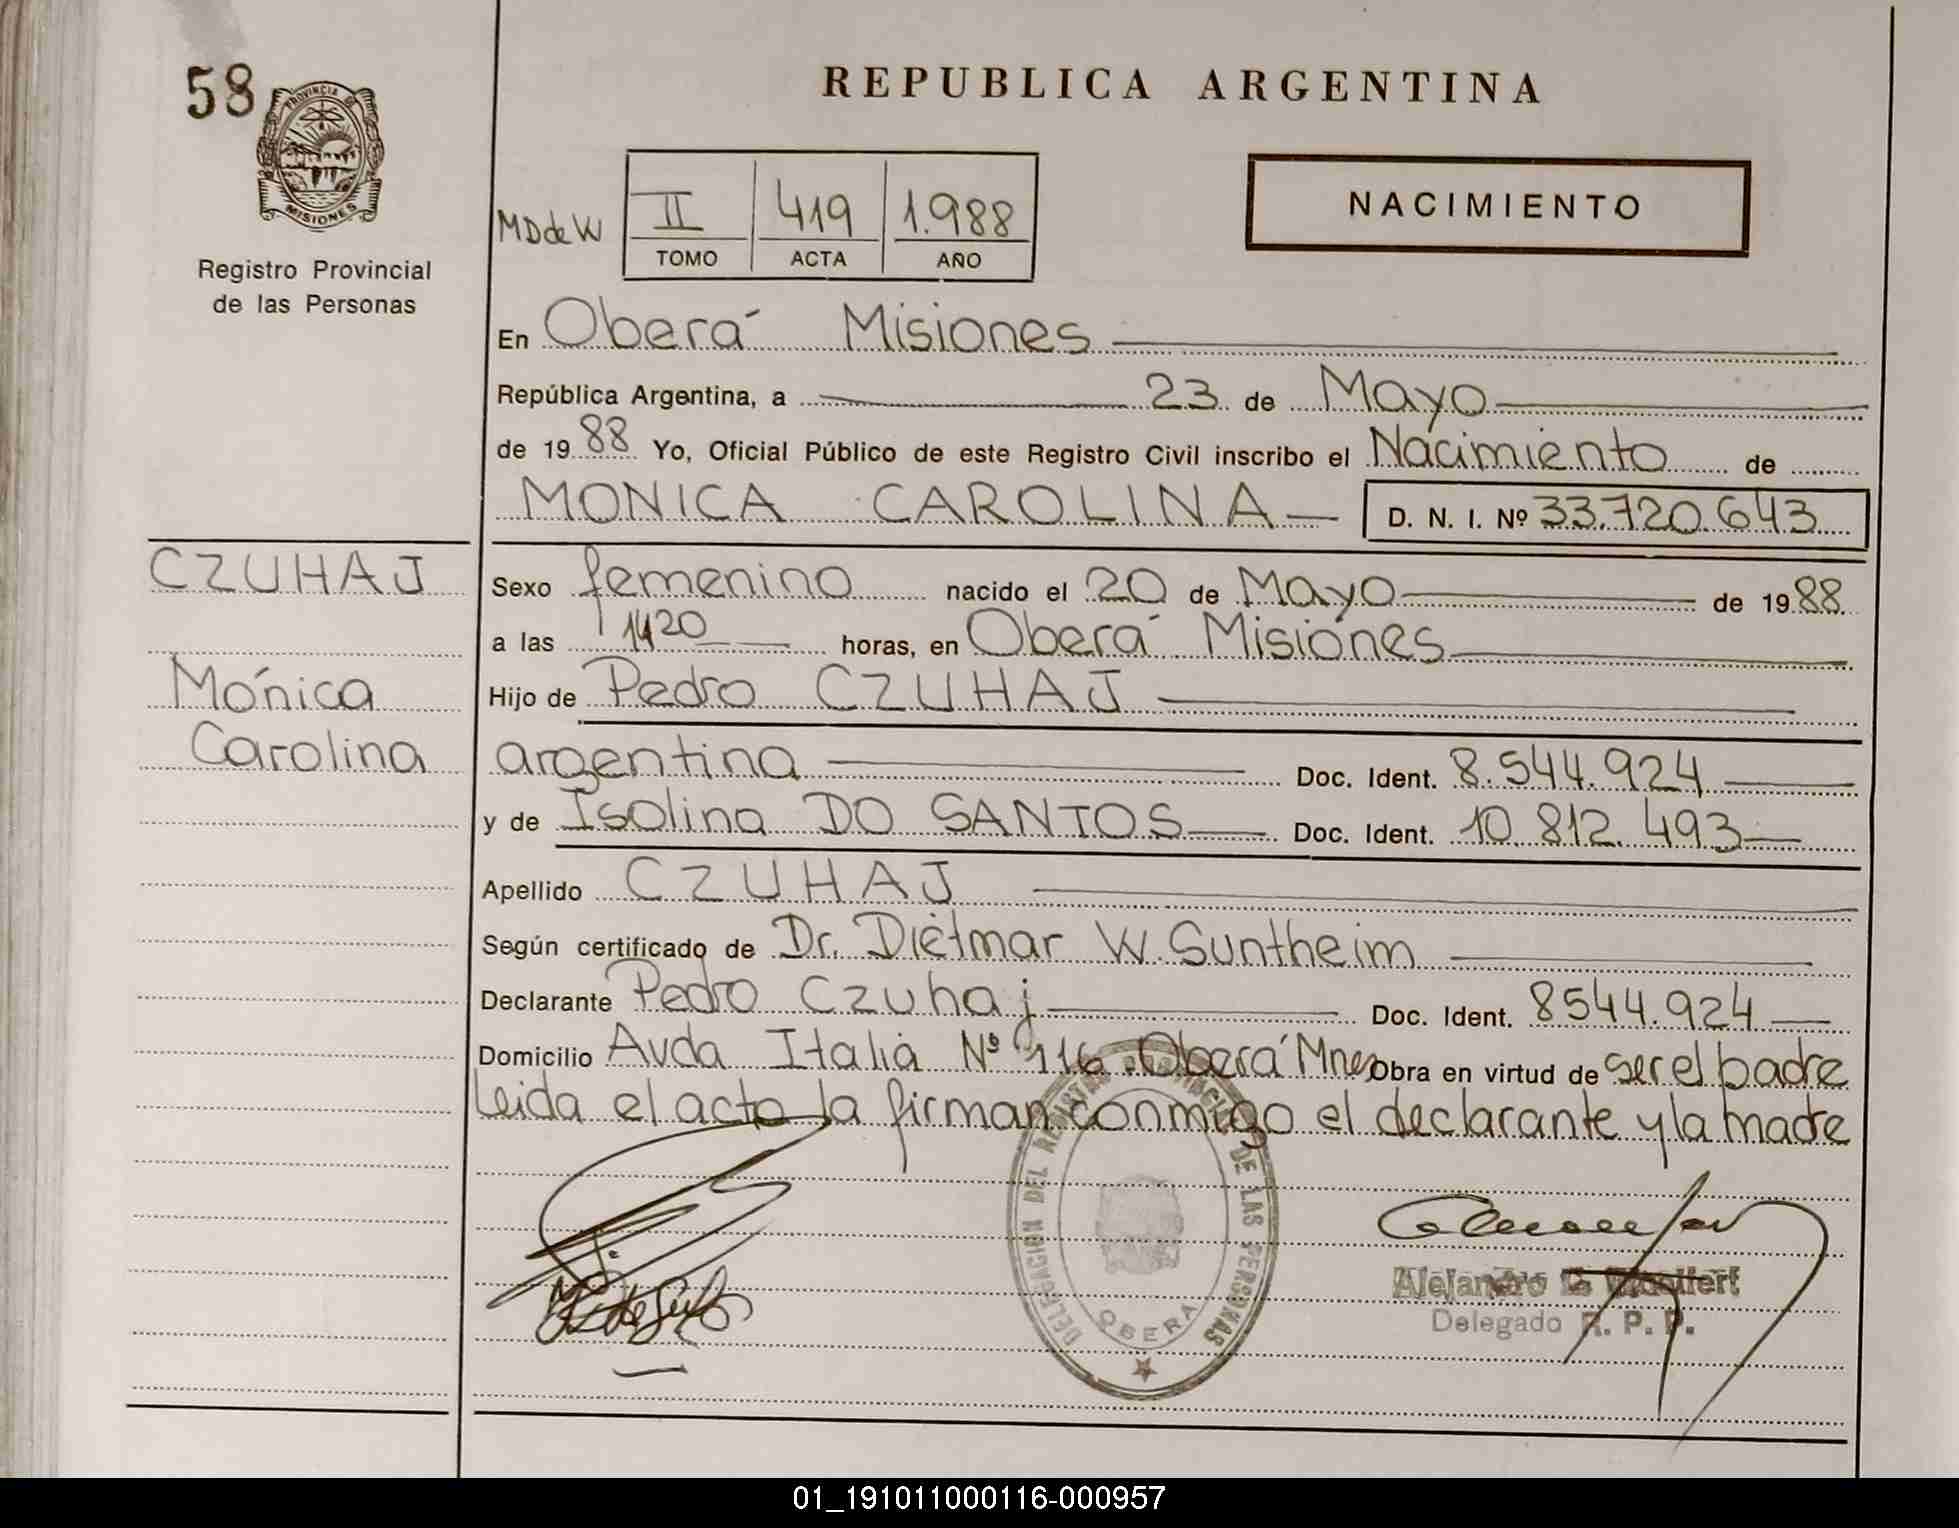 58
PROVINCIA DE
MISIONES
Registro Provincial
de las Personas
REPUBLICA ARGENTINA
NACIMIENTO
MD de W
II 419 1.988
TOMO ACTA AÑO
En Oberá Misiones
República Argentina, a 23 de Mayo
de 1988 Yo, Oficial Público de este Registro Civil inscribo el Nacimiento de
MONICA CAROLINA D. N. I. Nº 33.720.643
CZUHAJ
Mónica
Carolina
Sexo femenino nacido el 20 de Mayo de 1988
a las 1420 horas, en Oberá Misiones
Hijo de Pedro CZUHAJ
argentina Doc. Ident. 8.544.924
y de Isolina DO SANTOS Doc. Ident. 10.812.493
Apellido CZUHAJ
Según certificado de Dr. Dietmar W. Suntheim
Declarante Pedro Czuhaj Doc. Ident. 8544.924
Domicilio Avda Italia Nº 116 Oberá Mnes Obra en virtud de ser el padre
Leida el acta la firman conmigo el declarante y la madre
DELEGACION DEL REGISTRO PROVINCIAL DE LAS PERSONAS
OBERA
Alejandro
Delegado R. P. P.
01_191011000116-000957